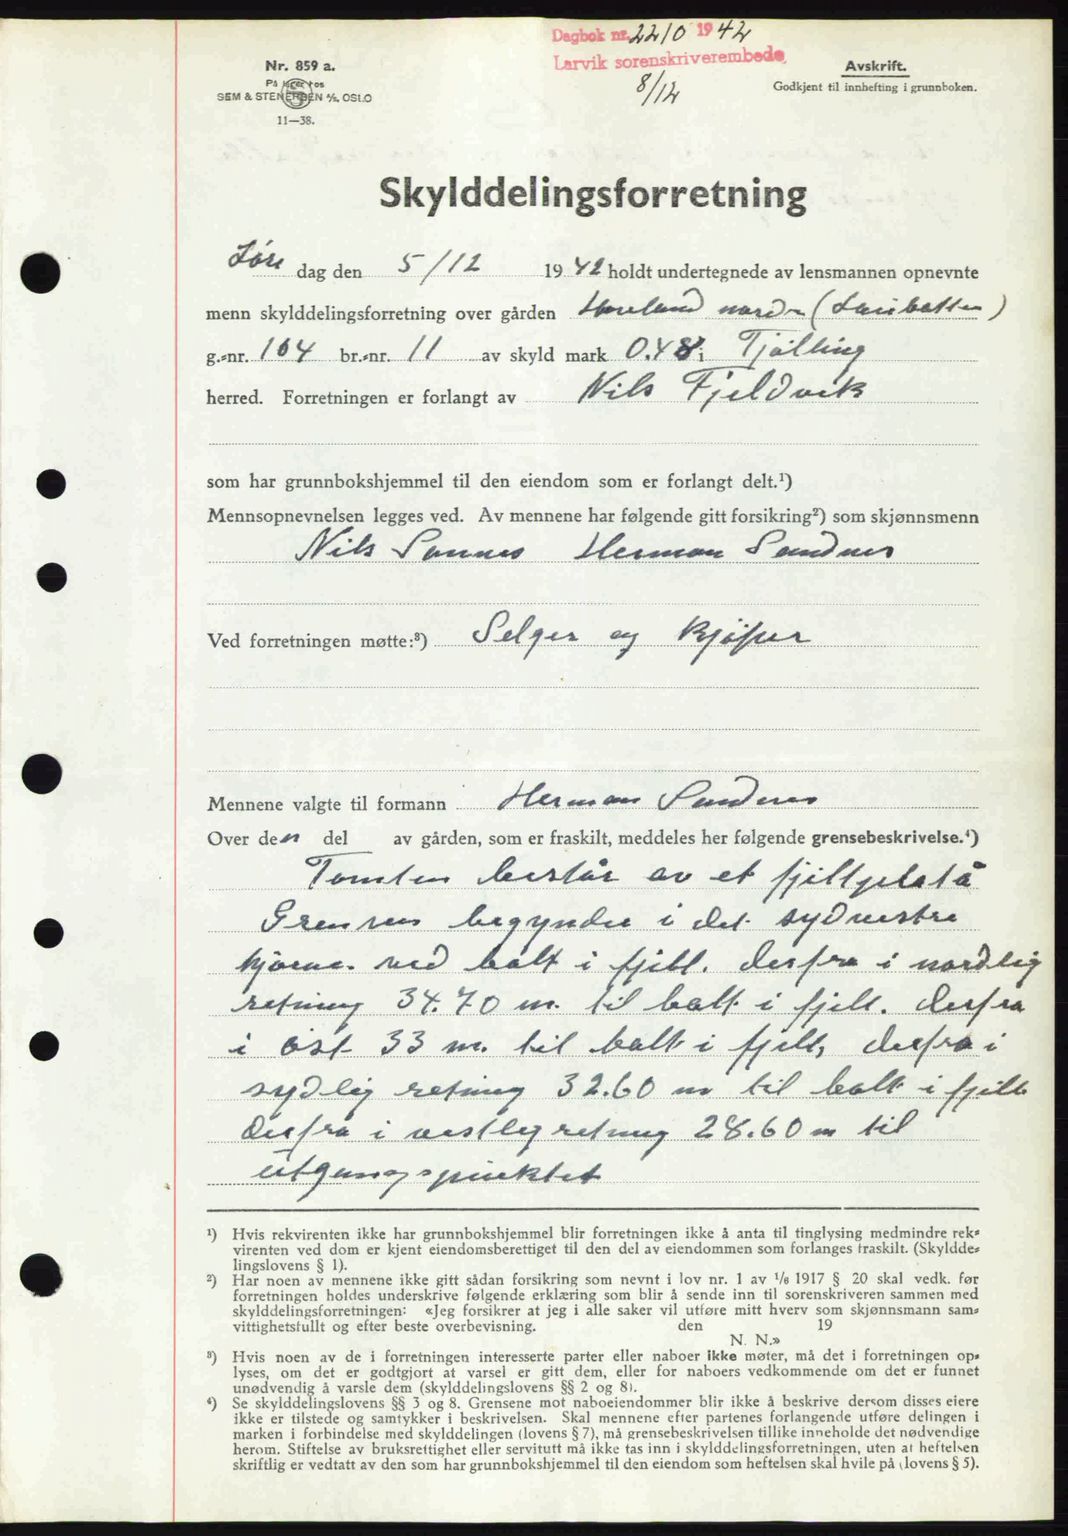 Dagbok nr. 2210 1942
Larvik sorenskriverembede,
8/12
Nr. 859 a.
På lager hos
SEM & STENERSEN A/S, OSLO
11—38.
Avskrift.
Godkjent til innhefting i grunnboken.
Skylddelingsforretning
Lør dag den 5/12 1942 holdt undertegnede av lensmannen opnevnte
menn skylddelingsforretning over gården nordre
g.-nr. 104 br.-nr. 11 av skyld mark 0.48 i Tjølling
herred. Forretningen er forlangt av Nils Fjeldvik
som har grunnbokshjemmel til den eiendom som er forlangt delt.¹)
Mennsopnevnelsen legges ved. Av mennene har følgende gitt forsikring²) som skjønnsmenn
Nils Sannes Herman Sundnes
Ved forretningen møtte:³) Selger og kjøper
Mennene valgte til formann Herman Sundnes
Over den del av gården, som er fraskilt, meddeles her følgende grensebeskrivelse.⁴)
Tomten består av et fjellplatå
Grensen begynder i det sydvestre
hjørne ved bolt i fjell. derfra i nordlig
retning 34.70 m. til bolt i fjell. derfra
i øst 33 m. til bolt i fjell, derfra i
sydlig retning 32.60 m til bolt i fjell
derfra i vestlig retning 28.60 m til
utgangspunktet
¹) Hvis rekvirenten ikke har grunnbokshjemmel blir forretningen ikke å anta til tinglysing medmindre rek-
virenten ved dom er kjent eiendomsberettiget til den del av eiendommen som forlanges fraskilt. (Skyldde-
lingslovens § 1).
²) Har noen av mennene ikke gitt sådan forsikring som nevnt i lov nr. 1 av 1/6 1917 § 20 skal vedk. før
forretningen holdes underskrive følgende erklæring som blir å sende inn til sorenskriveren sammen med
skylddelingsforretningen: «Jeg forsikrer at jeg i alle saker vil utføre mitt hverv som skjønnsmann sam-
vittighetsfullt og efter beste overbevisning. den 19
N. N.»
³) Hvis noen av de i forretningen interesserte parter eller naboer ikke møter, må det i forretningen op-
lyses, om det er godtgjort at varsel er gitt dem, eller for naboers vedkommende om det er funnet
unødvendig å varsle dem (skylddelingslovens §§ 2 og 8).
⁴) Se skylddelingslovens §§ 3 og 8. Grensene mot naboeiendommer blir ikke å beskrive dersom disses eiere
ikke er tilstede og samtykker i beskrivelsen. Skal mennene efter partenes forlangende utføre delingen i
marken i forbindelse med skylddelingen (lovens § 7), må grensebeskrivelsen tillike inneholde det nødvendige
herom. Stiftelse av bruksrettighet eller servitutt må ikke tas inn i skylddelingsforretningen, uten at heftelsen
skriftlig er vedtatt av den som har grunnbokshjemmel til den eiendom som heftelsen skal hvile på (lovens § 5).